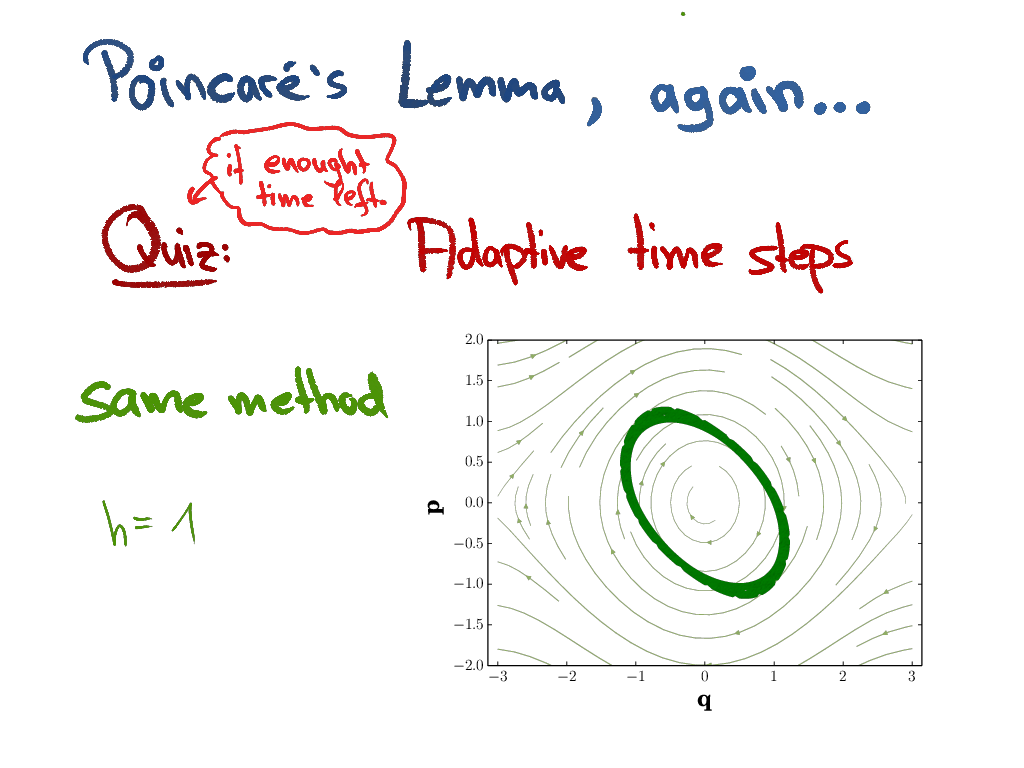 Poincaré's Lemma, again...
if enought
time left.
Quiz: Adaptive time steps
same method
h = 1
2.0
1.5
1.0
0.5
0.0
−0.5
−1.0
−1.5
−2.0
p
−3 −2 −1 0 1 2 3
q